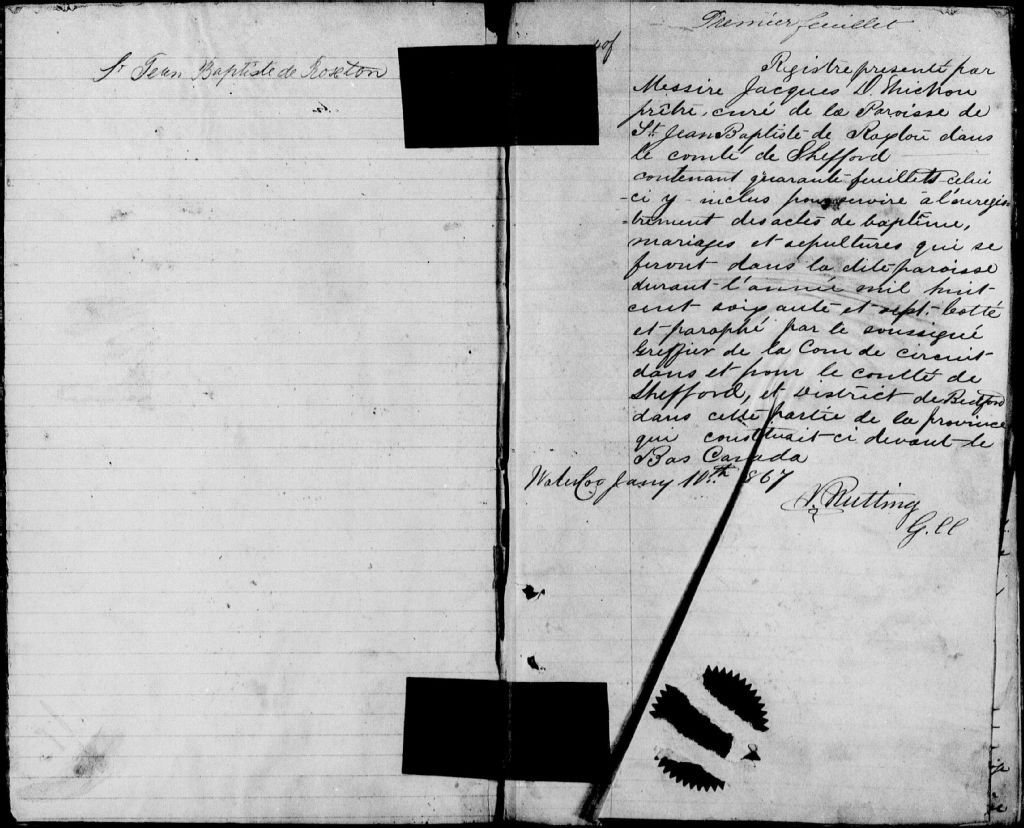 St Jean Baptiste de Roxton
Premier feuillet
40f
Registre presenté par
Messire Jacques D. Michon
prêtre, curé de la Paroisse de
St. Jean Baptiste de Roxton dans
le comté de Shefford
contenant quarante feuillets celui
-ci y inclus pour servir à l'enregis
-trement des actes de baptême,
mariages et sépultures qui se
feront dans la dite paroisse
durant l'année mil huit
cent soixante et sept. Cotté
et paraphé par le soussigné
Greffier de la Cour de circuit
dans et pour le comté de
Shefford, et District de Bedford
dans cette partie de la province
qui constituait ci devant le
Bas Canada
Waterloo Jany 10th 867
Nutting
G.CC